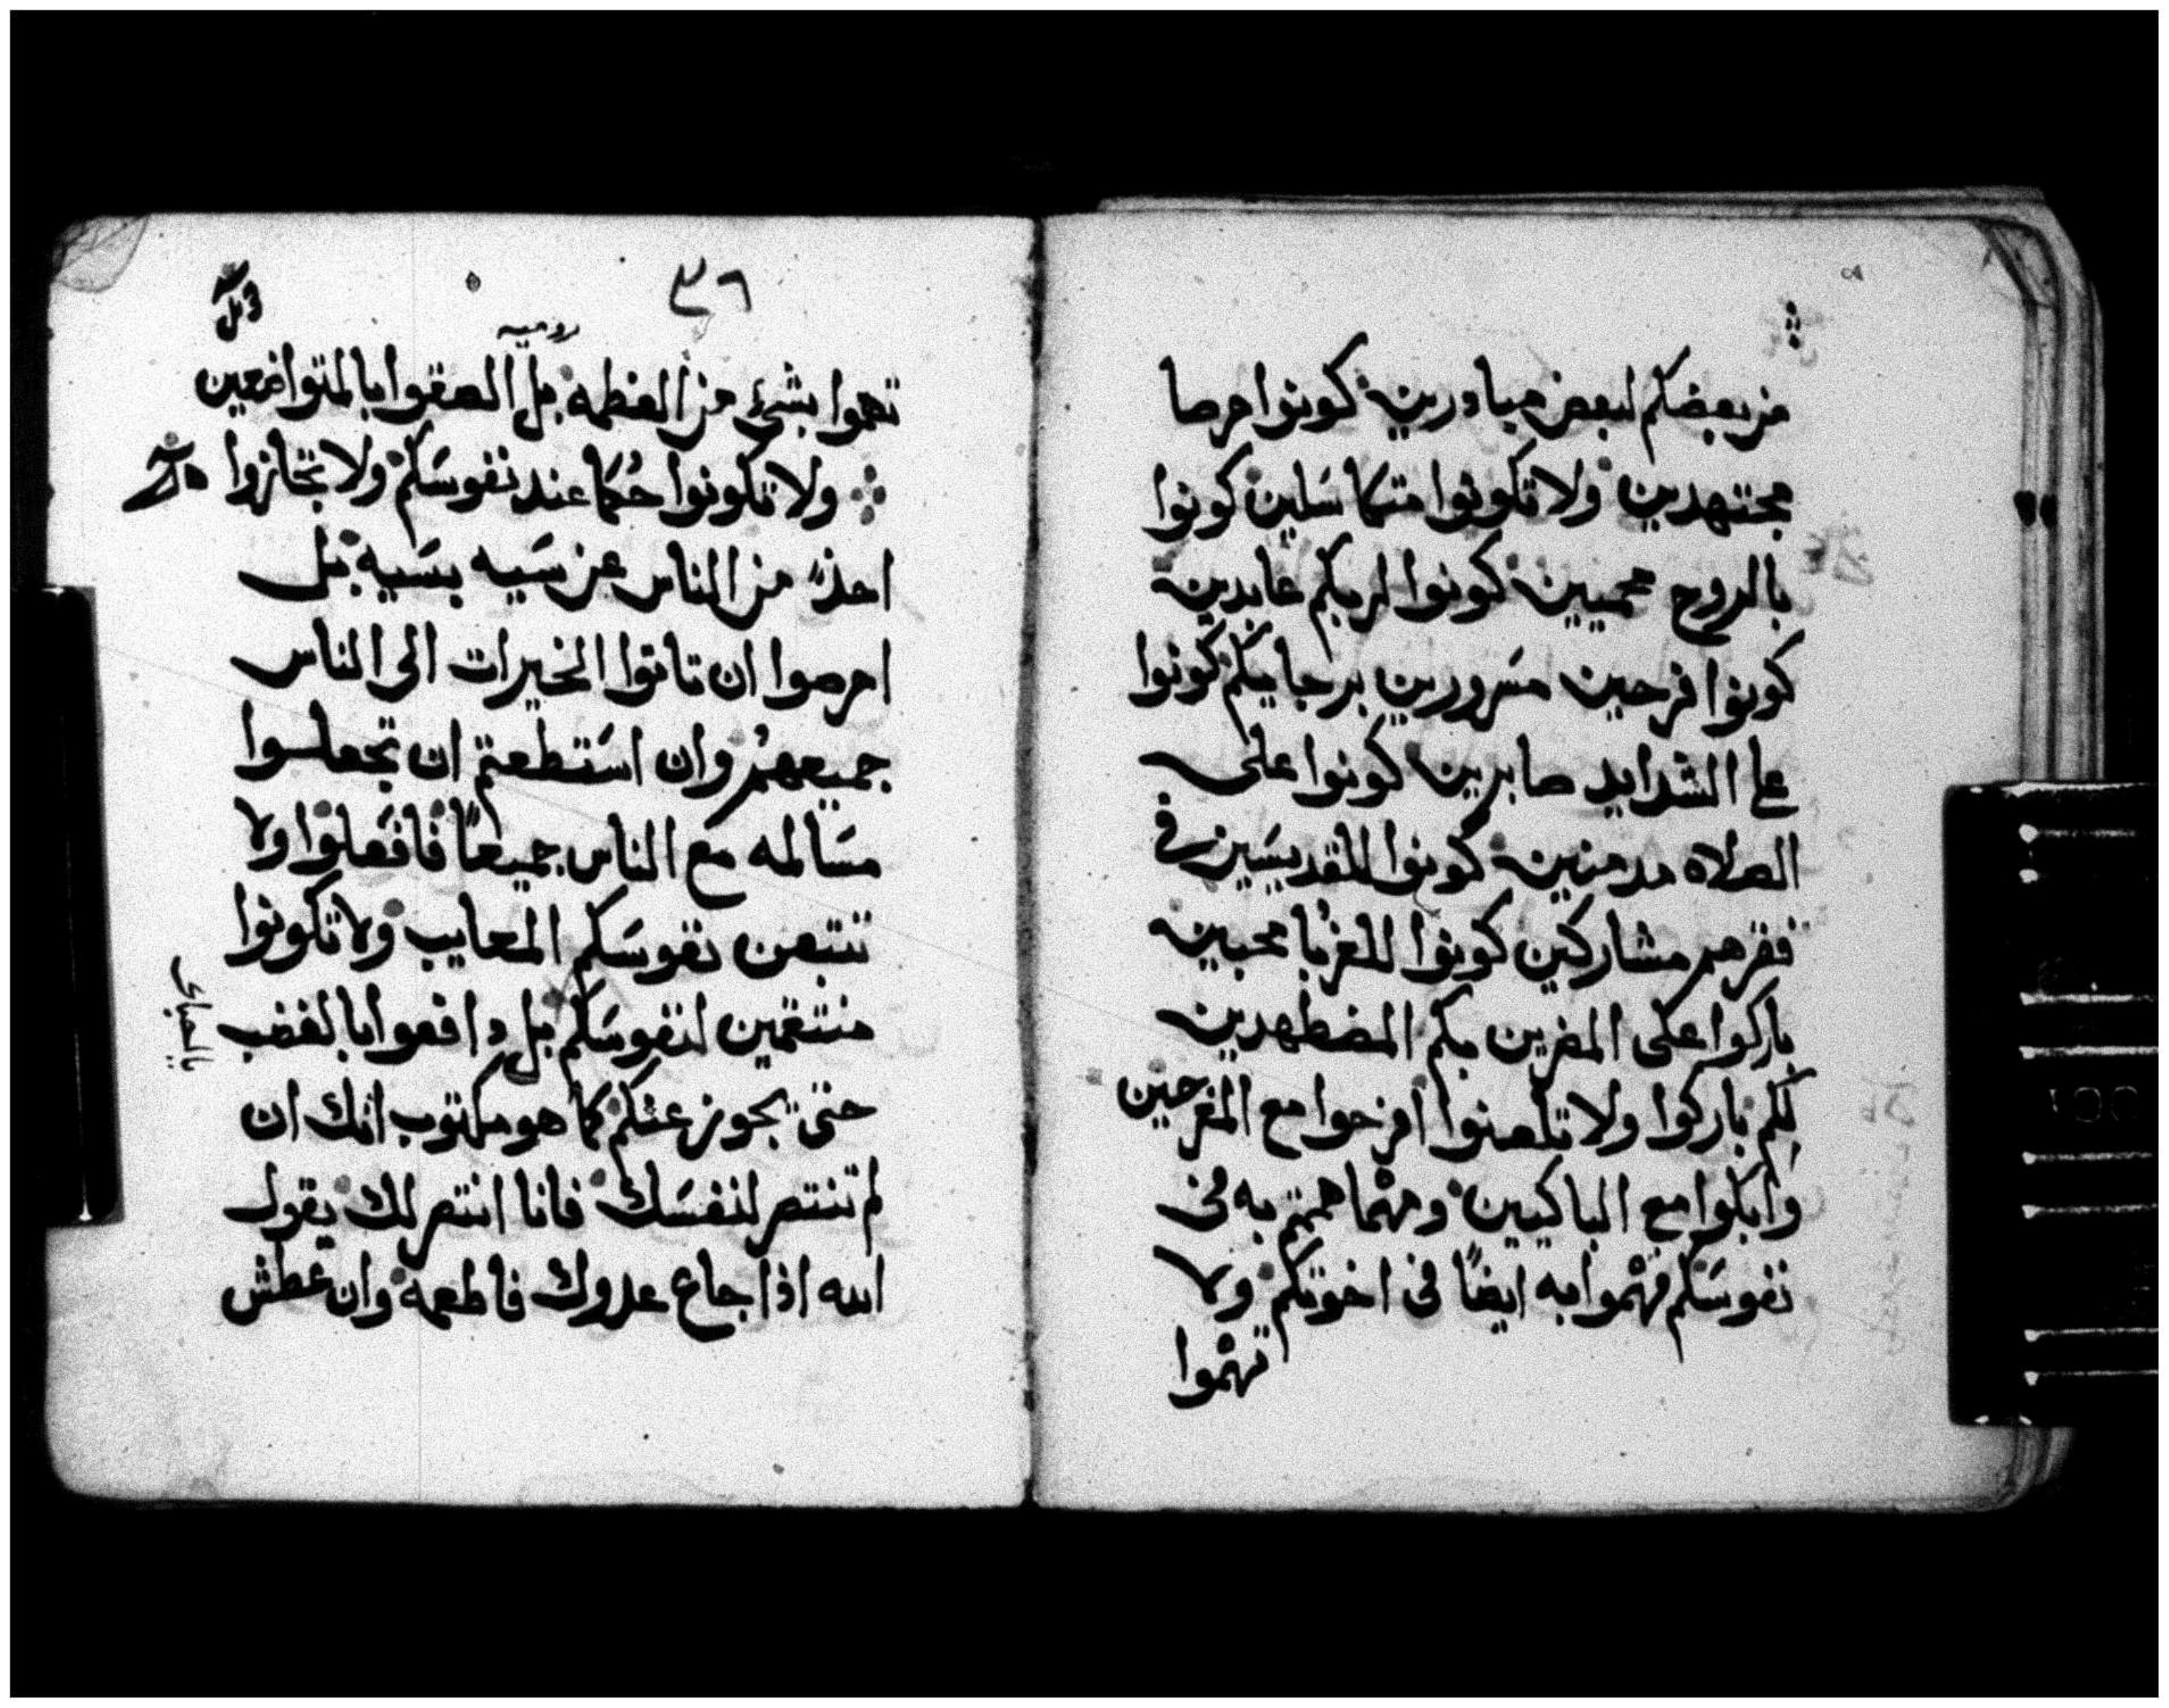 من بعضكم لبعض مبادرين كونوا حرصا
مجتهدين ولا تكونوا متكاسَلين كونوا
بالروح محميين كونوا لربكم عابدين
كونوا فرحين مسَرورين برجايكم كونوا
علي الشدايد صابرين كونوا على
الصلاه مدمنين كونوا للقديسَين في
فقرهم مشاركين كونوا للغُربا محبين
باركوا على المضرين بكم المضطهدين
لكم باركوا ولا تلعنوا افرحوا مع الفرحين
وابكوا مع الباكيين ومهما هممتم به في
نفوسَكم فهموا به ايضًا في اخوتكم ولا
تهموا
٣٦
روميه
تهموا بشيء من العظمه بل الصقوا بالمتواضعين
ولا تكونوا حُكما عند نفوسَكم ولا تجازوا
احدًا من الناس عن سَيه بسَيه بل
احرصوا ان تاتوا الخيرات الى الناس
جميعهم وان اسَتطعتم ان تجعلوا
مسَالمه مع الناس جميعًا فافعَلوا ولا
تتبعن نفوسَكم المعايب ولا تكونوا
منتقمين لنفوسَكم بل دافعوا بالغضب
حتى يجوز عنكم كما هو مكتوب انك ان
لم تنتصر لنفسَك فانا انتصر لك يقول
الله اذا جاع عدوك فاطعمه وان عطش